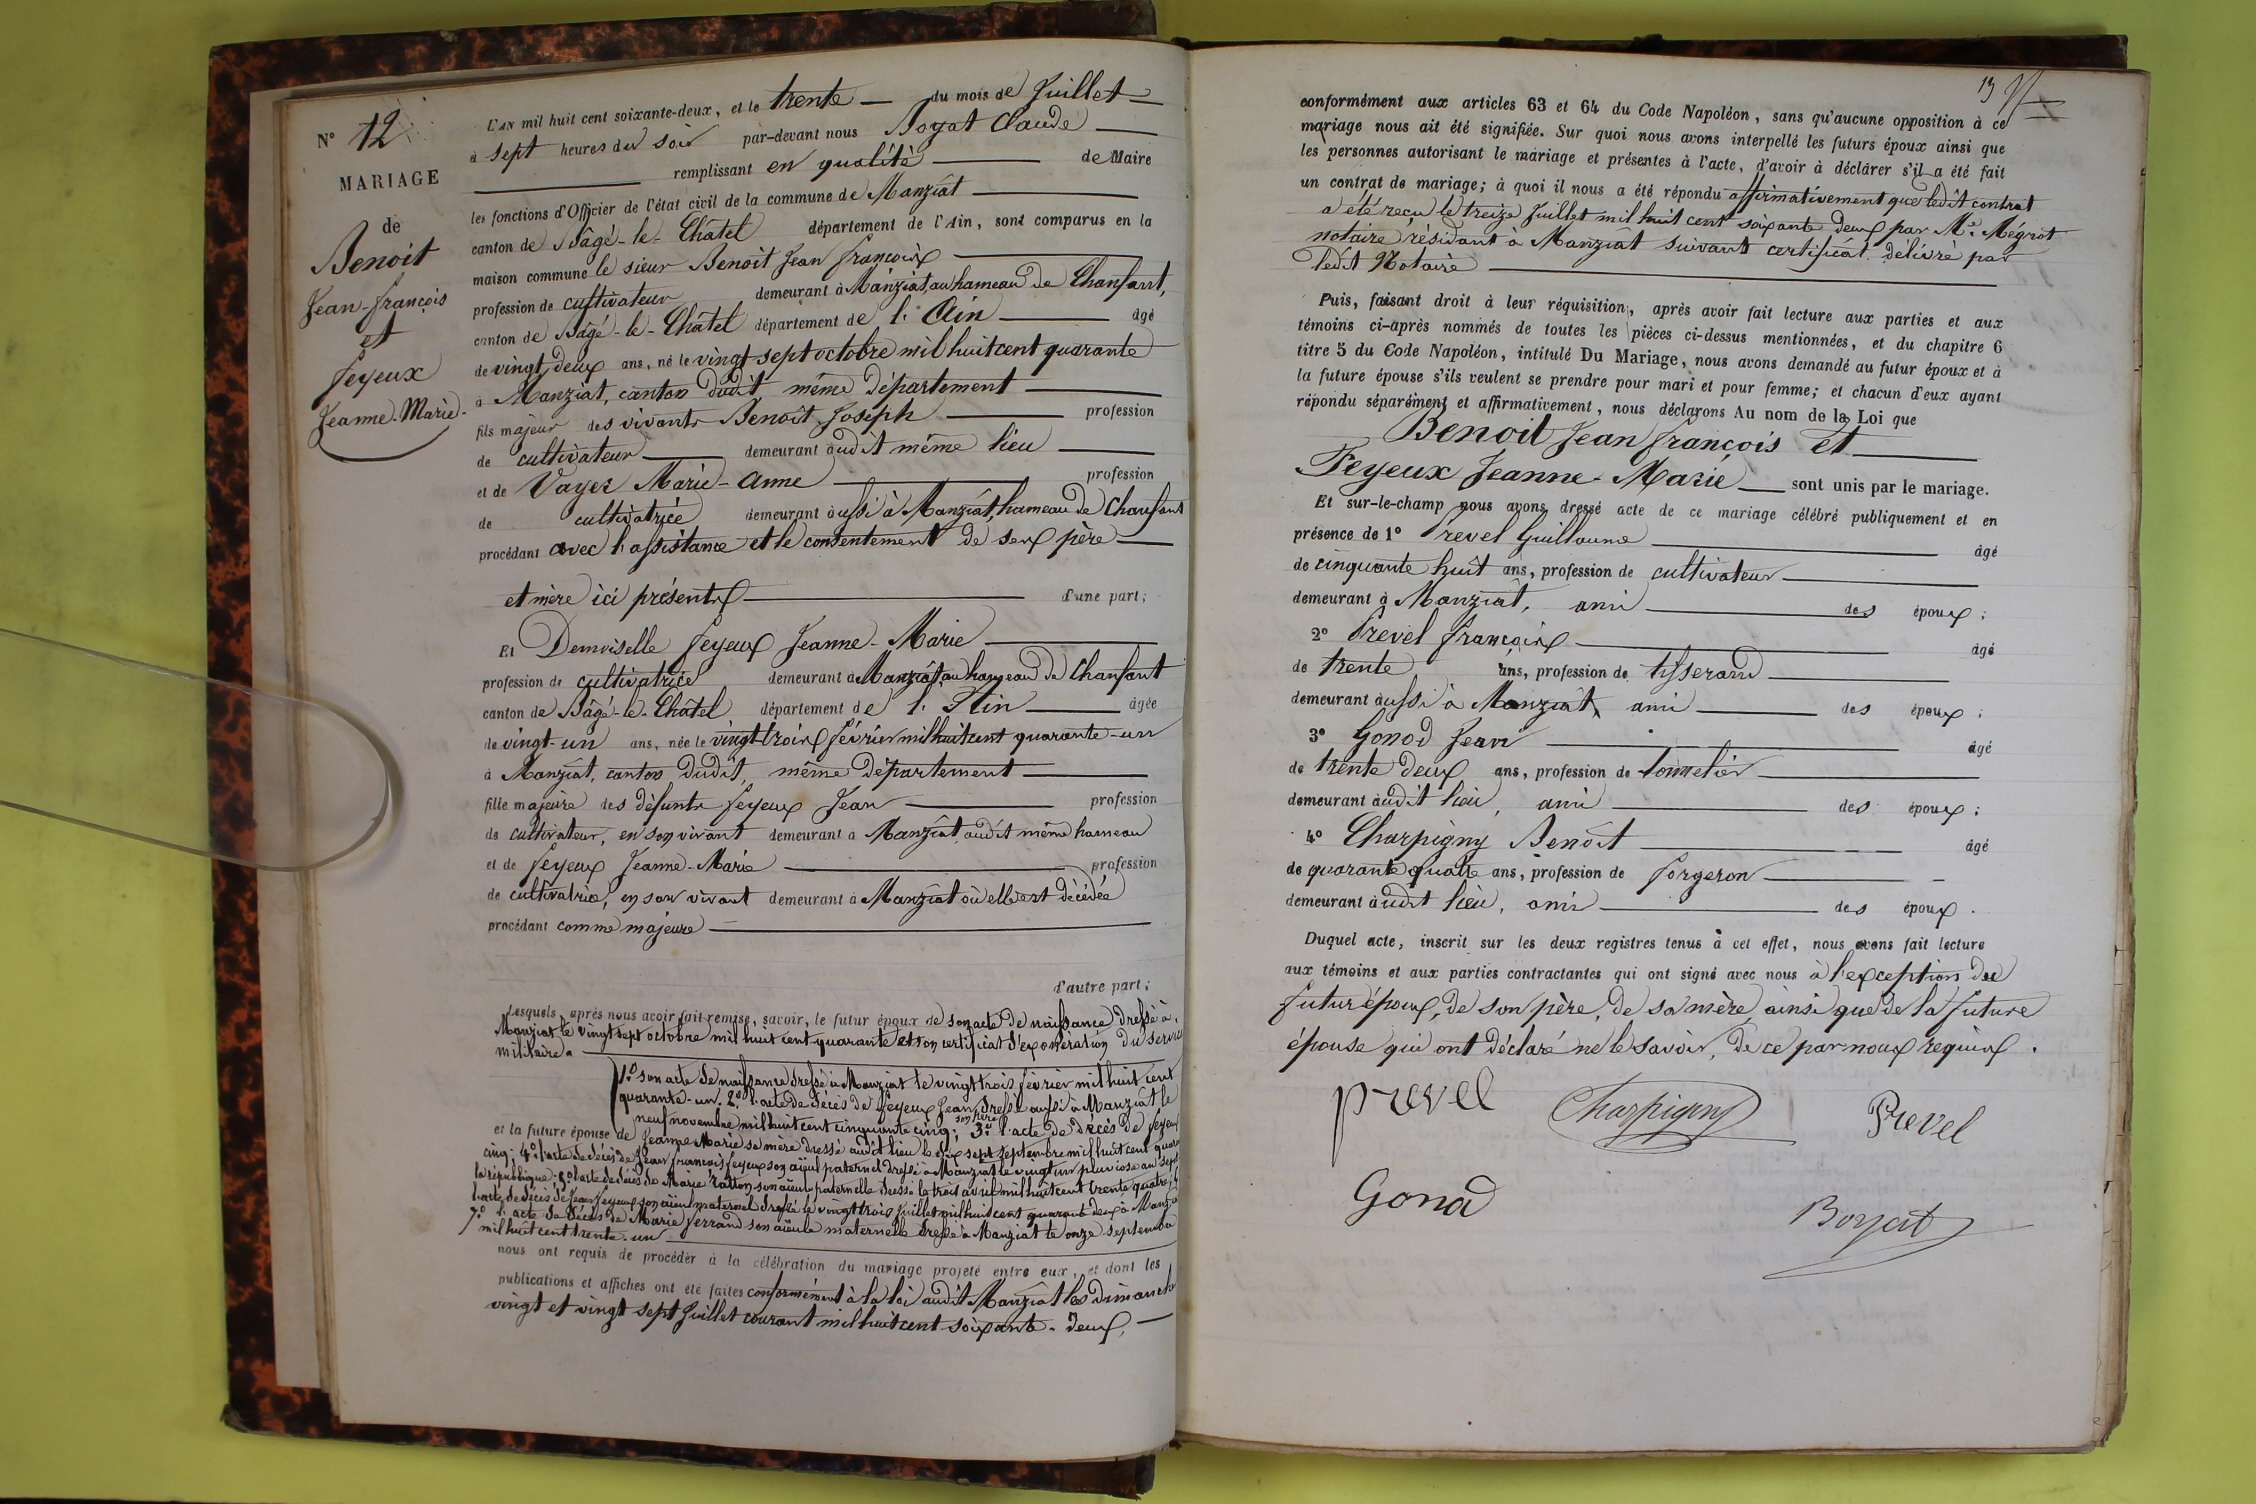 N° 12
MARIAGE
de
Benoit
Jean-françois
et
feyeux
Jeanne-Marie.
L'AN mil huit cent soixante-deux, et le trente du mois de Juillet
à sept heures du soir par-devant nous Boyat Claude
remplissant en qualité de Maire
les fonctions d'Officier de l'état civil de la commune de Manziat
canton de Bâgé-le-Châtel département de l'Ain, sont comparus en la
maison commune le sieur Benoit Jean françois
profession de cultivateur demeurant à Manziat, au hameau de Chanfant,
canton de Bâgé-le-Châtel département de l'Ain âgé
de vingt deux ans, né le vingt sept octobre mil huit cent quarante
à Manziat, canton dudit même département
fils majeur des vivants Benoit Joseph profession
de cultivateur demeurant audit même lieu
et de Vayer Marie-Anne profession
de cultivatrice demeurant aussi à Manziat, hameau de Chanfant
procédant avec l'assistance et le consentement de ses père
et mère ici présents d'une part;
Et Demoiselle feyeux Jeanne-Marie
profession de cultivatrice demeurant à Manziat, au hameau de Chanfant
canton de Bâgé-le-Châtel département de l'Ain âgée
de vingt-un ans, née le vingt trois février mil huit cent quarante-un
à Manziat, canton dudit, même département
fille majeure des défunts feyeux Jean profession
de cultivateur, en son vivant demeurant à Manziat, audit même hameau
et de feyeux Jeanne-Marie profession
de cultivatrice, en son vivant demeurant à Manziat où elle est décédée
procédant comme majeure
d'autre part;
Lesquels, après nous avoir fait remise, savoir, le futur époux de son acte de naissance dressé à
Manziat le vingt sept octobre mil huit cent quarante et son certificat d'exonération du service
militaire
1° son acte de naissance dressé à Manziat le vingt trois février mil huit cent
quarante-un. 2° l'acte de décès de feyeux Jean son père dressé aussi à Manziat le
neuf novembre mil huit cent cinquante cinq; 3° l'acte de décès de feyeux
et la future épouse de Jeanne Marie sa mère dressé audit lieu le dix sept septembre mil huit cent quarante
cinq; 4° l'acte de décès de Jean françois feyeux son aïeul paternel dressé à Manziat le vingt un pluviose an sept
la république; 5° l'acte de décès de Marie Ratton son aïeule paternelle dressé le trois avril mil huit cent trente quatre; 6°
l'acte de décès de Jean feyeux son aïeul maternel dressé le vingt trois juillet mil huit cent quarante deux à Manziat
7° l'acte de décès de Marie ferrand son aïeule maternelle dressé à Manziat le onze septembre
mil huit cent trente-un
nous ont requis de procéder à la célébration du mariage projeté entre eux, et dont les
publications et affiches ont été faites conformément à la loi audit Manziat les dimanches
vingt et vingt sept Juillet courant mil huit cent soixante-deux,
13
conformément aux articles 63 et 64 du Code Napoléon, sans qu'aucune opposition à ce
mariage nous ait été signifiée. Sur quoi nous avons interpellé les futurs époux ainsi que
les personnes autorisant le mariage et présentes à l'acte, d'avoir à déclarer s'il a été fait
un contrat de mariage; à quoi il nous a été répondu affirmativement que ledit contrat
a été reçu le treize Juillet mil huit cent soixante deux par Me Mégriot
notaire résidant à Manziat suivant certificat délivré par
ledit Notaire
Puis, faisant droit à leur réquisition, après avoir fait lecture aux parties et aux
témoins ci-après nommés de toutes les pièces ci-dessus mentionnées, et du chapitre 6
titre 5 du Code Napoléon, intitulé Du Mariage, nous avons demandé au futur époux et à
la future épouse s'ils veulent se prendre pour mari et pour femme; et chacun d'eux ayant
répondu séparément et affirmativement, nous déclarons Au nom de la Loi que
Benoit Jean françois et
Feyeux Jeanne-Marie sont unis par le mariage.
Et sur-le-champ nous avons dressé acte de ce mariage célébré publiquement et en
présence de 1° Prevel Guillaume âgé
de cinquante huit ans, profession de cultivateur
demeurant à Manziat, ami des époux;
2° Prevel françois âgé
de trente ans, profession de tisserand
demeurant aussi à Manziat, ami des époux;
3° Gonod Jean âgé
de trente deux ans, profession de tonnelier
demeurant audit lieu, ami des époux;
4° Charpigny Benoit âgé
de quarante quatre ans, profession de forgeron
demeurant audit lieu, ami des époux.
Duquel acte, inscrit sur les deux registres tenus à cet effet, nous avons fait lecture
aux témoins et aux parties contractantes qui ont signé avec nous à l'exception du
futur époux, de son père, de sa mère, ainsi que de la future
épouse qui ont déclaré ne le savoir, de ce par nous requis.
prevel Charpigny Prevel
Gonod Boyat